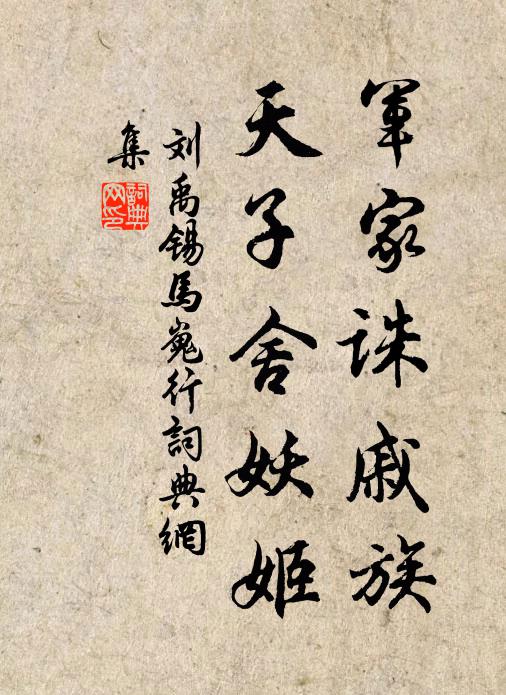 軍家誅戚族
天子舍妖姬
刘禹锡馬嵬行詞典網
集
詞典
网印